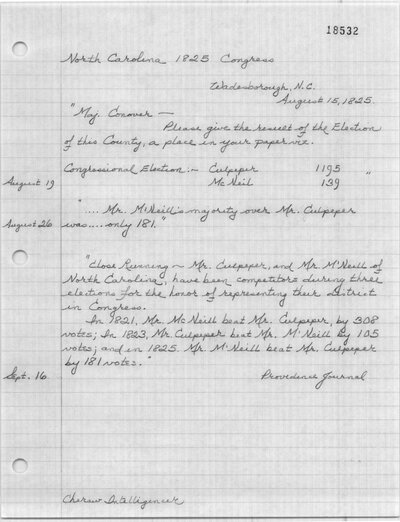 18532
North Carolina 1825 Congress
Wadesborough, N.C.
August 15, 1825.
"Maj. Conover —
Please give the result of the Election
of this County, a place in your paper viz.
Congressional Election:- Culpeper 1195 "
August 19 McNeil 139
".... Mr. McNeill's majority over Mr. Culpeper
August 26 was.... only 181."
"Close Running — Mr. Culpeper, and Mr. McNeill of
North Carolina, have been competitors during three
elections for the honor of representing their District
in Congress.
In 1821, Mr. McNeill beat Mr. Culpeper, by 308
votes; In 1823, Mr. Culpeper beat Mr. McNeill by 105
votes; and in 1825. Mr. McNeill beat Mr. Culpeper
by 181 votes."
Sept. 16 Providence Journal
Cheraw Intelligencer